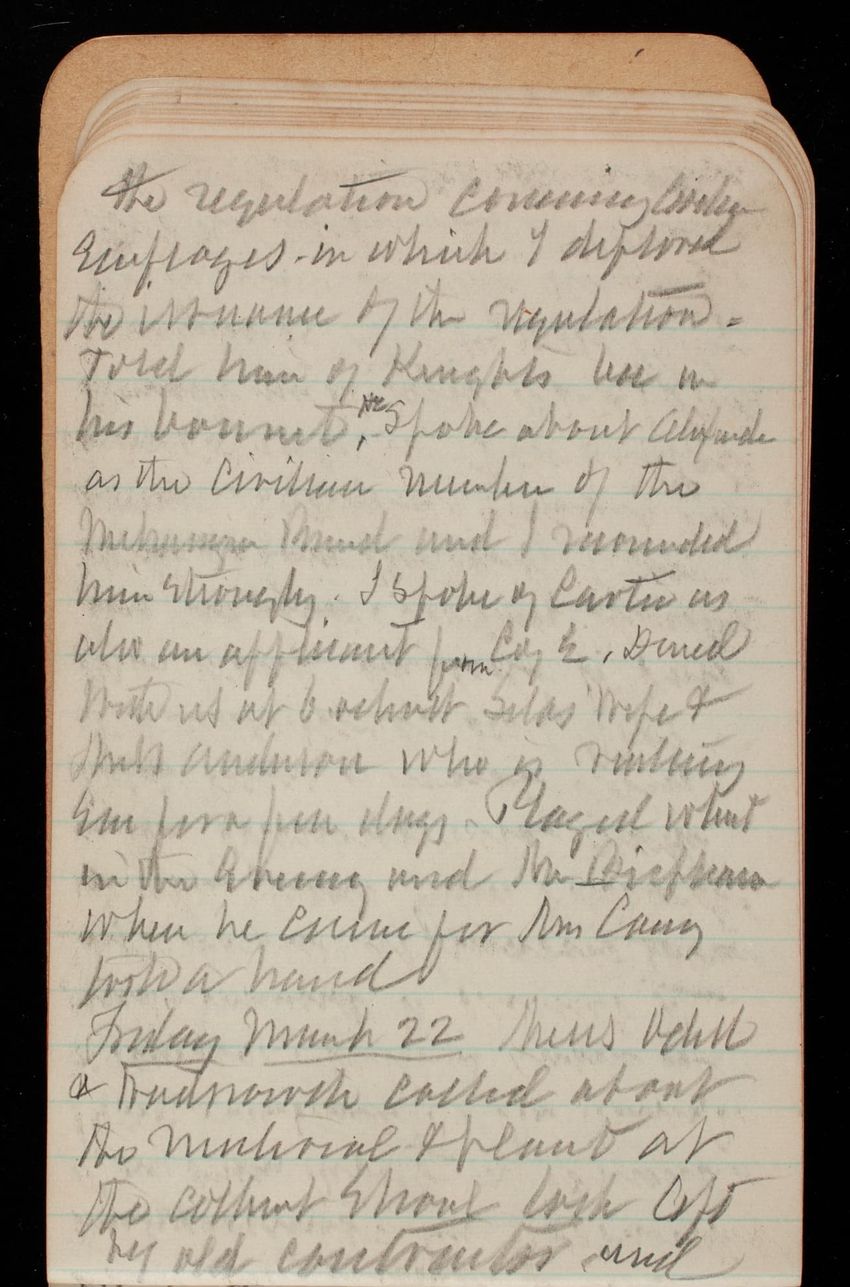 the regulation concerning Civilian
Employes - in which I deplored
the issuance of the regulation.
Told him of Knights bee in
his bonnet, He Spoke about
as the Civilian Member of the
and I recommended
him Strongly. I Spoke of Carter as
also an applicant from Coy E. Dined
with us at 6 oclock Silas Wife &
Miss Anderson who is visiting
Em for a few days. Played whist
in the Evening and Mr
when he came for Mrs Casey
took a hand
Friday March 22 Messrs Odell
& Wadsworth called about
the material & plant at
the Colbert Shoal lock left
by old contractor and